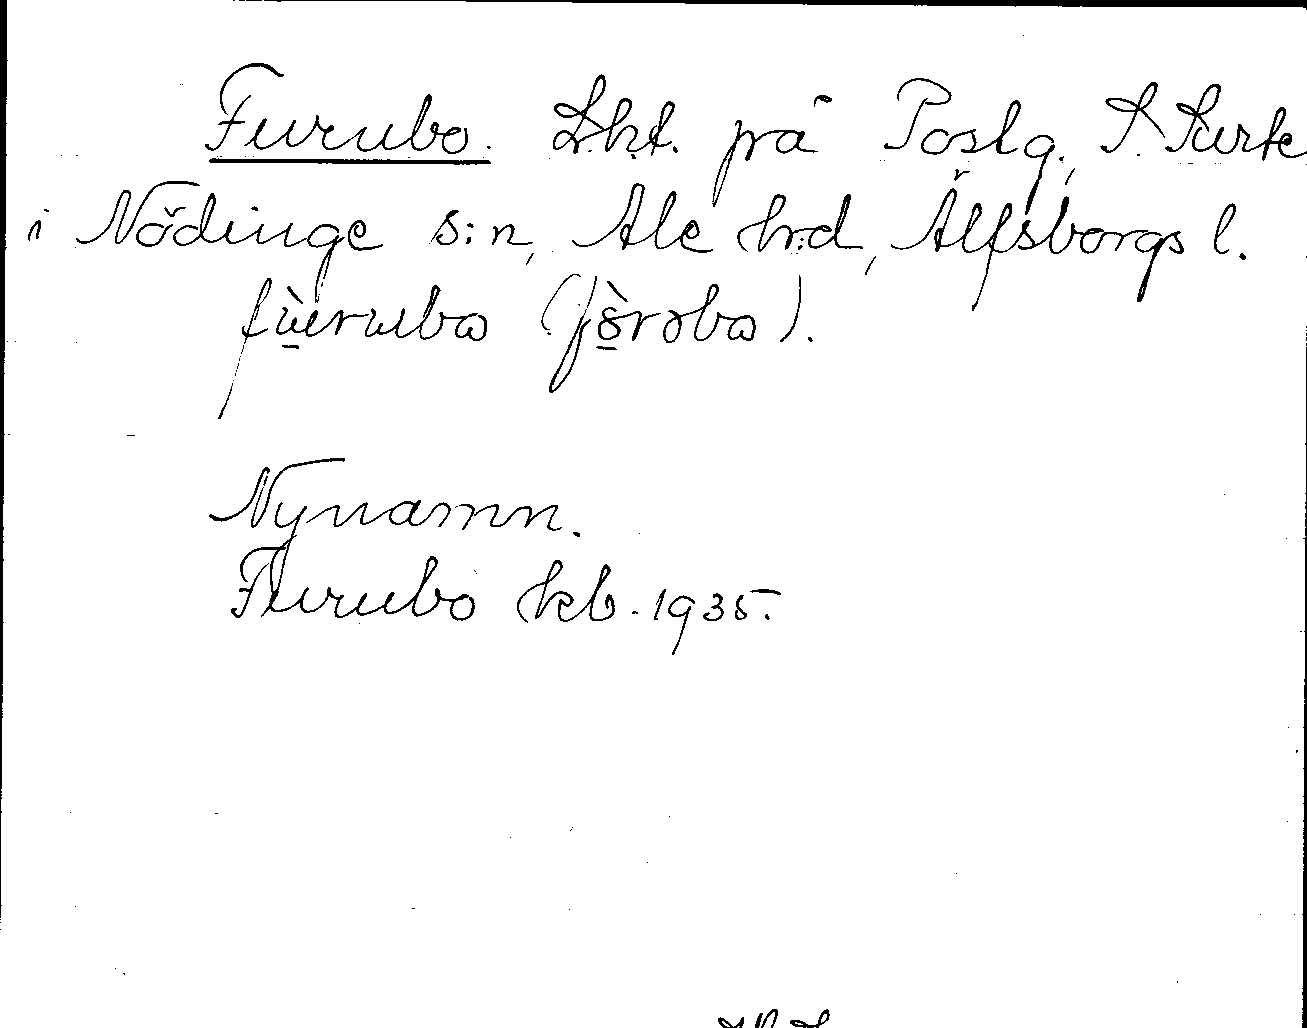 Furubo. Lht. på Postg., S. Surte
i Nödinge s:n, Ale hrd, Älfsborgs l.
fùrubo (fòroba).
Nynamn.
Furubo kb. 1935.